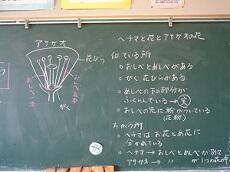 アサガオ
花びら
めしべ
おしべ
がく
ヘチマと花とアサガオの花
似ている所
○おしべとめしべがある
○がく 花びらがある
○めしべの下の部分が
ふくらんでいる→実
○おしべの先に粉がついている
(花粉)
ちがう所
○ヘチマはお花とめ花に
分かれている
○ヘチマ→おしべとめしべが別で
アサガオ→ 〃 が1つの花